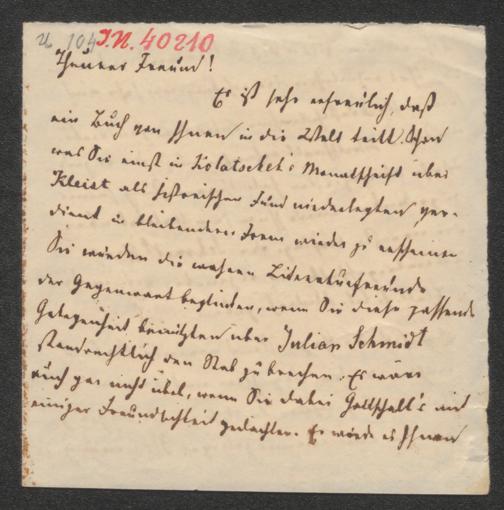 U 104 I.N. 40210
Theurer Freund!
Es ist sehr erfreulich, daß
ein Buch von Ihnen in die Welt tritt. Schon
was Sie einst in Kolatschek's Monatschrift über
Kleist als historischen Fund niederlegten, ver-
dient in bleibender Form wieder zu erscheinen.
Sie würden die wahren Literaturfreunde
der Gegenwart beglücken, wenn Sie diese passende
Gelegenheit benützten über Julian Schmidt
standrechtlich den Stab zu brechen. Es wäre
auch gar nicht übel, wenn Sie dabei Gottschall's mit
einiger Freundlichkeit gedächten. Es würde es Ihnen